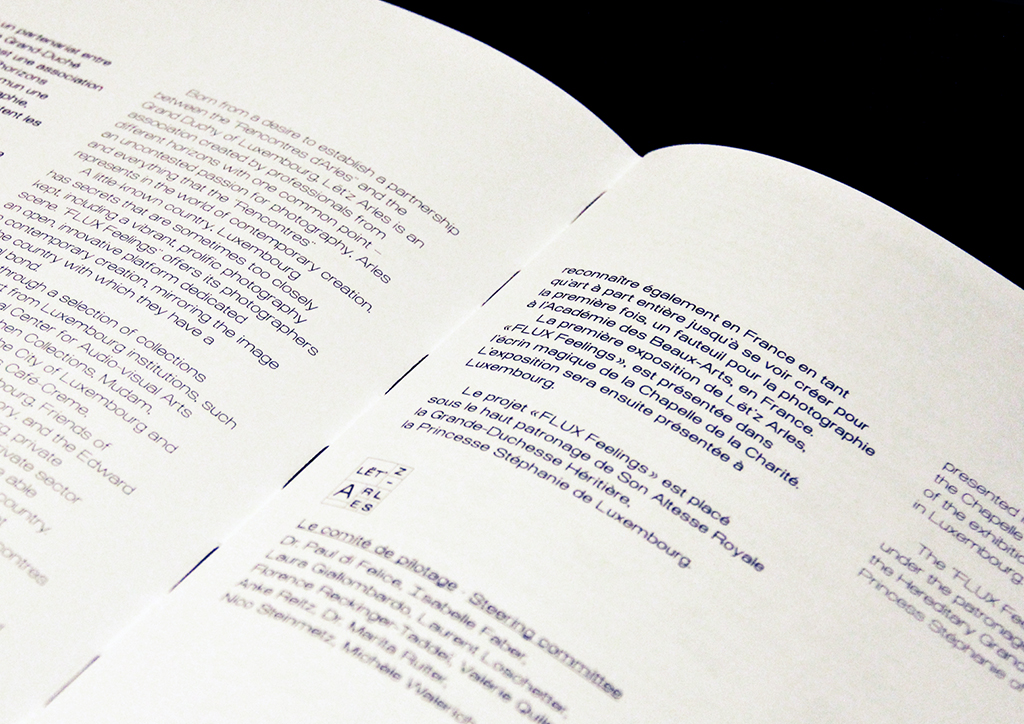 un partenariat entre
Grand-Duché
est une association
horizons
mun une
aphie,
tent les
Born from a desire to establish a partnership
between the "Rencontres d'Arles" and the
Grand Duchy of Luxembourg, Lët'z Arles is an
association created by professionals from
different horizons with one common point –
an uncontested passion for photography, Arles
and everything that the "Rencontres"
represents in the world of contemporary creation.
A little known country, Luxembourg
has secrets that are sometimes too closely
kept, including a vibrant, prolific photography
scene. "FLUX Feelings" offers its photographers
an open, innovative platform dedicated
contemporary creation, mirroring the image
e country with which they have a
l bond.
through a selection of collections
t from Luxembourg institutions, such
al Center for Audio-visual Arts
hen Collections, Mudam,
the City of Luxembourg and
Café-Crème,
bourg, Friends of
ory, and the Edward
private
private sector
able
country
contres
reconnaître également en France en tant
qu'art à part entière jusqu'à se voir créer pour
la première fois, un fauteuil pour la photographie
à l'Académie des Beaux-Arts, en France.
La première exposition de Lët'z Arles,
«FLUX Feelings», est présentée dans
l'écrin magique de la Chapelle de la Charité.
L'exposition sera ensuite présentée à
Luxembourg.
Le projet «FLUX Feelings» est placé
sous le haut patronage de Son Altesse Royale
la Grande-Duchesse Héritière,
la Princesse Stéphanie de Luxembourg.
LËT'Z
ARL
ES
Le comité de pilotage · Steering committee
Dr. Paul di Felice, Isabelle Faber,
Laura Giallombardo, Laurent Loschetter,
Florence Reckinger-Taddeï, Valérie Quil
Anke Reitz, Dr. Marita Ruiter,
Nico Steinmetz, Michèle Walerich
presented
the Chapelle
of the exhibiti
in Luxembourg
The "FLUX Fee
under the patronag
the Hereditary Grand
Princess Stéphanie of